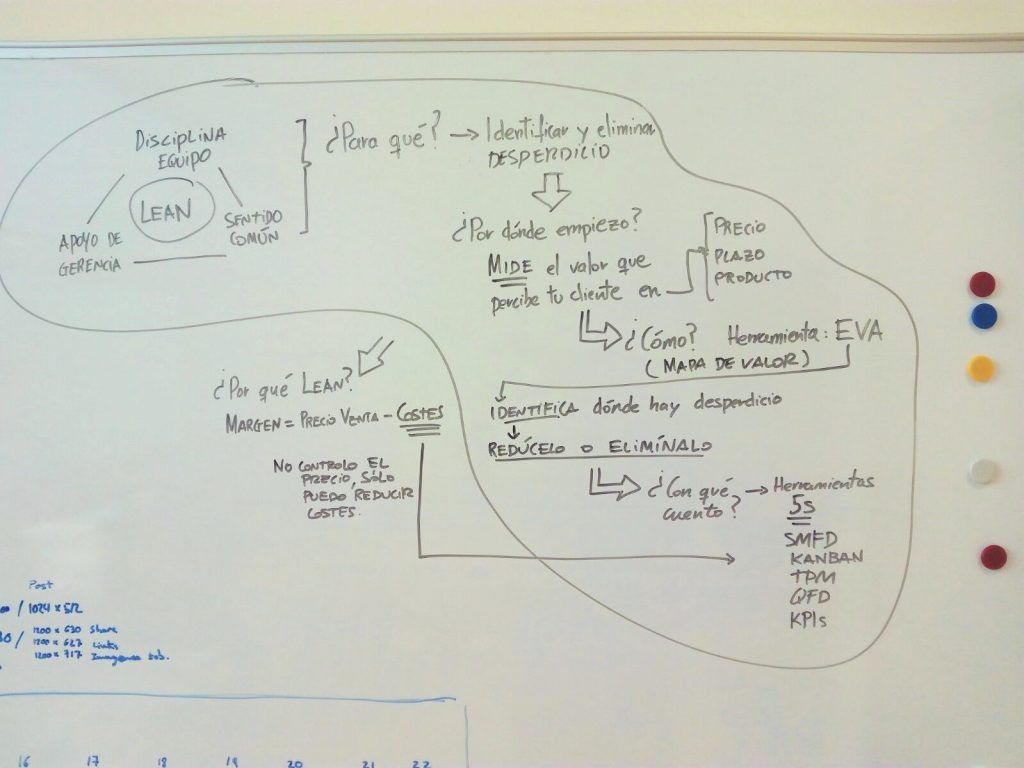 DISCIPLINA
EQUIPO
LEAN
APOYO DE
GERENCIA
SENTIDO
COMÚN
¿Para qué? → Identificar y eliminar
DESPERDICIO
¿Por dónde empiezo?
MIDE el valor que
percibe tu cliente en
PRECIO
PLAZO
PRODUCTO
¿Cómo? Herramienta: EVA
(MAPA DE VALOR)
IDENTIFICA dónde hay desperdicio
REDÚCELO O ELIMÍNALO
¿Con qué → Herramientas
cuento?
5S
SMED
KANBAN
TPM
QFD
KPIs
¿Por qué LEAN?
MARGEN = PRECIO VENTA - COSTES
NO CONTROLO EL
PRECIO, SÓLO
PUEDO REDUCIR
COSTES.
Post
/ 1024 x 512
/ 1200 x 630 Share
1200 x 627 Links
1200 x 717
16 17 18 19 20 21 22